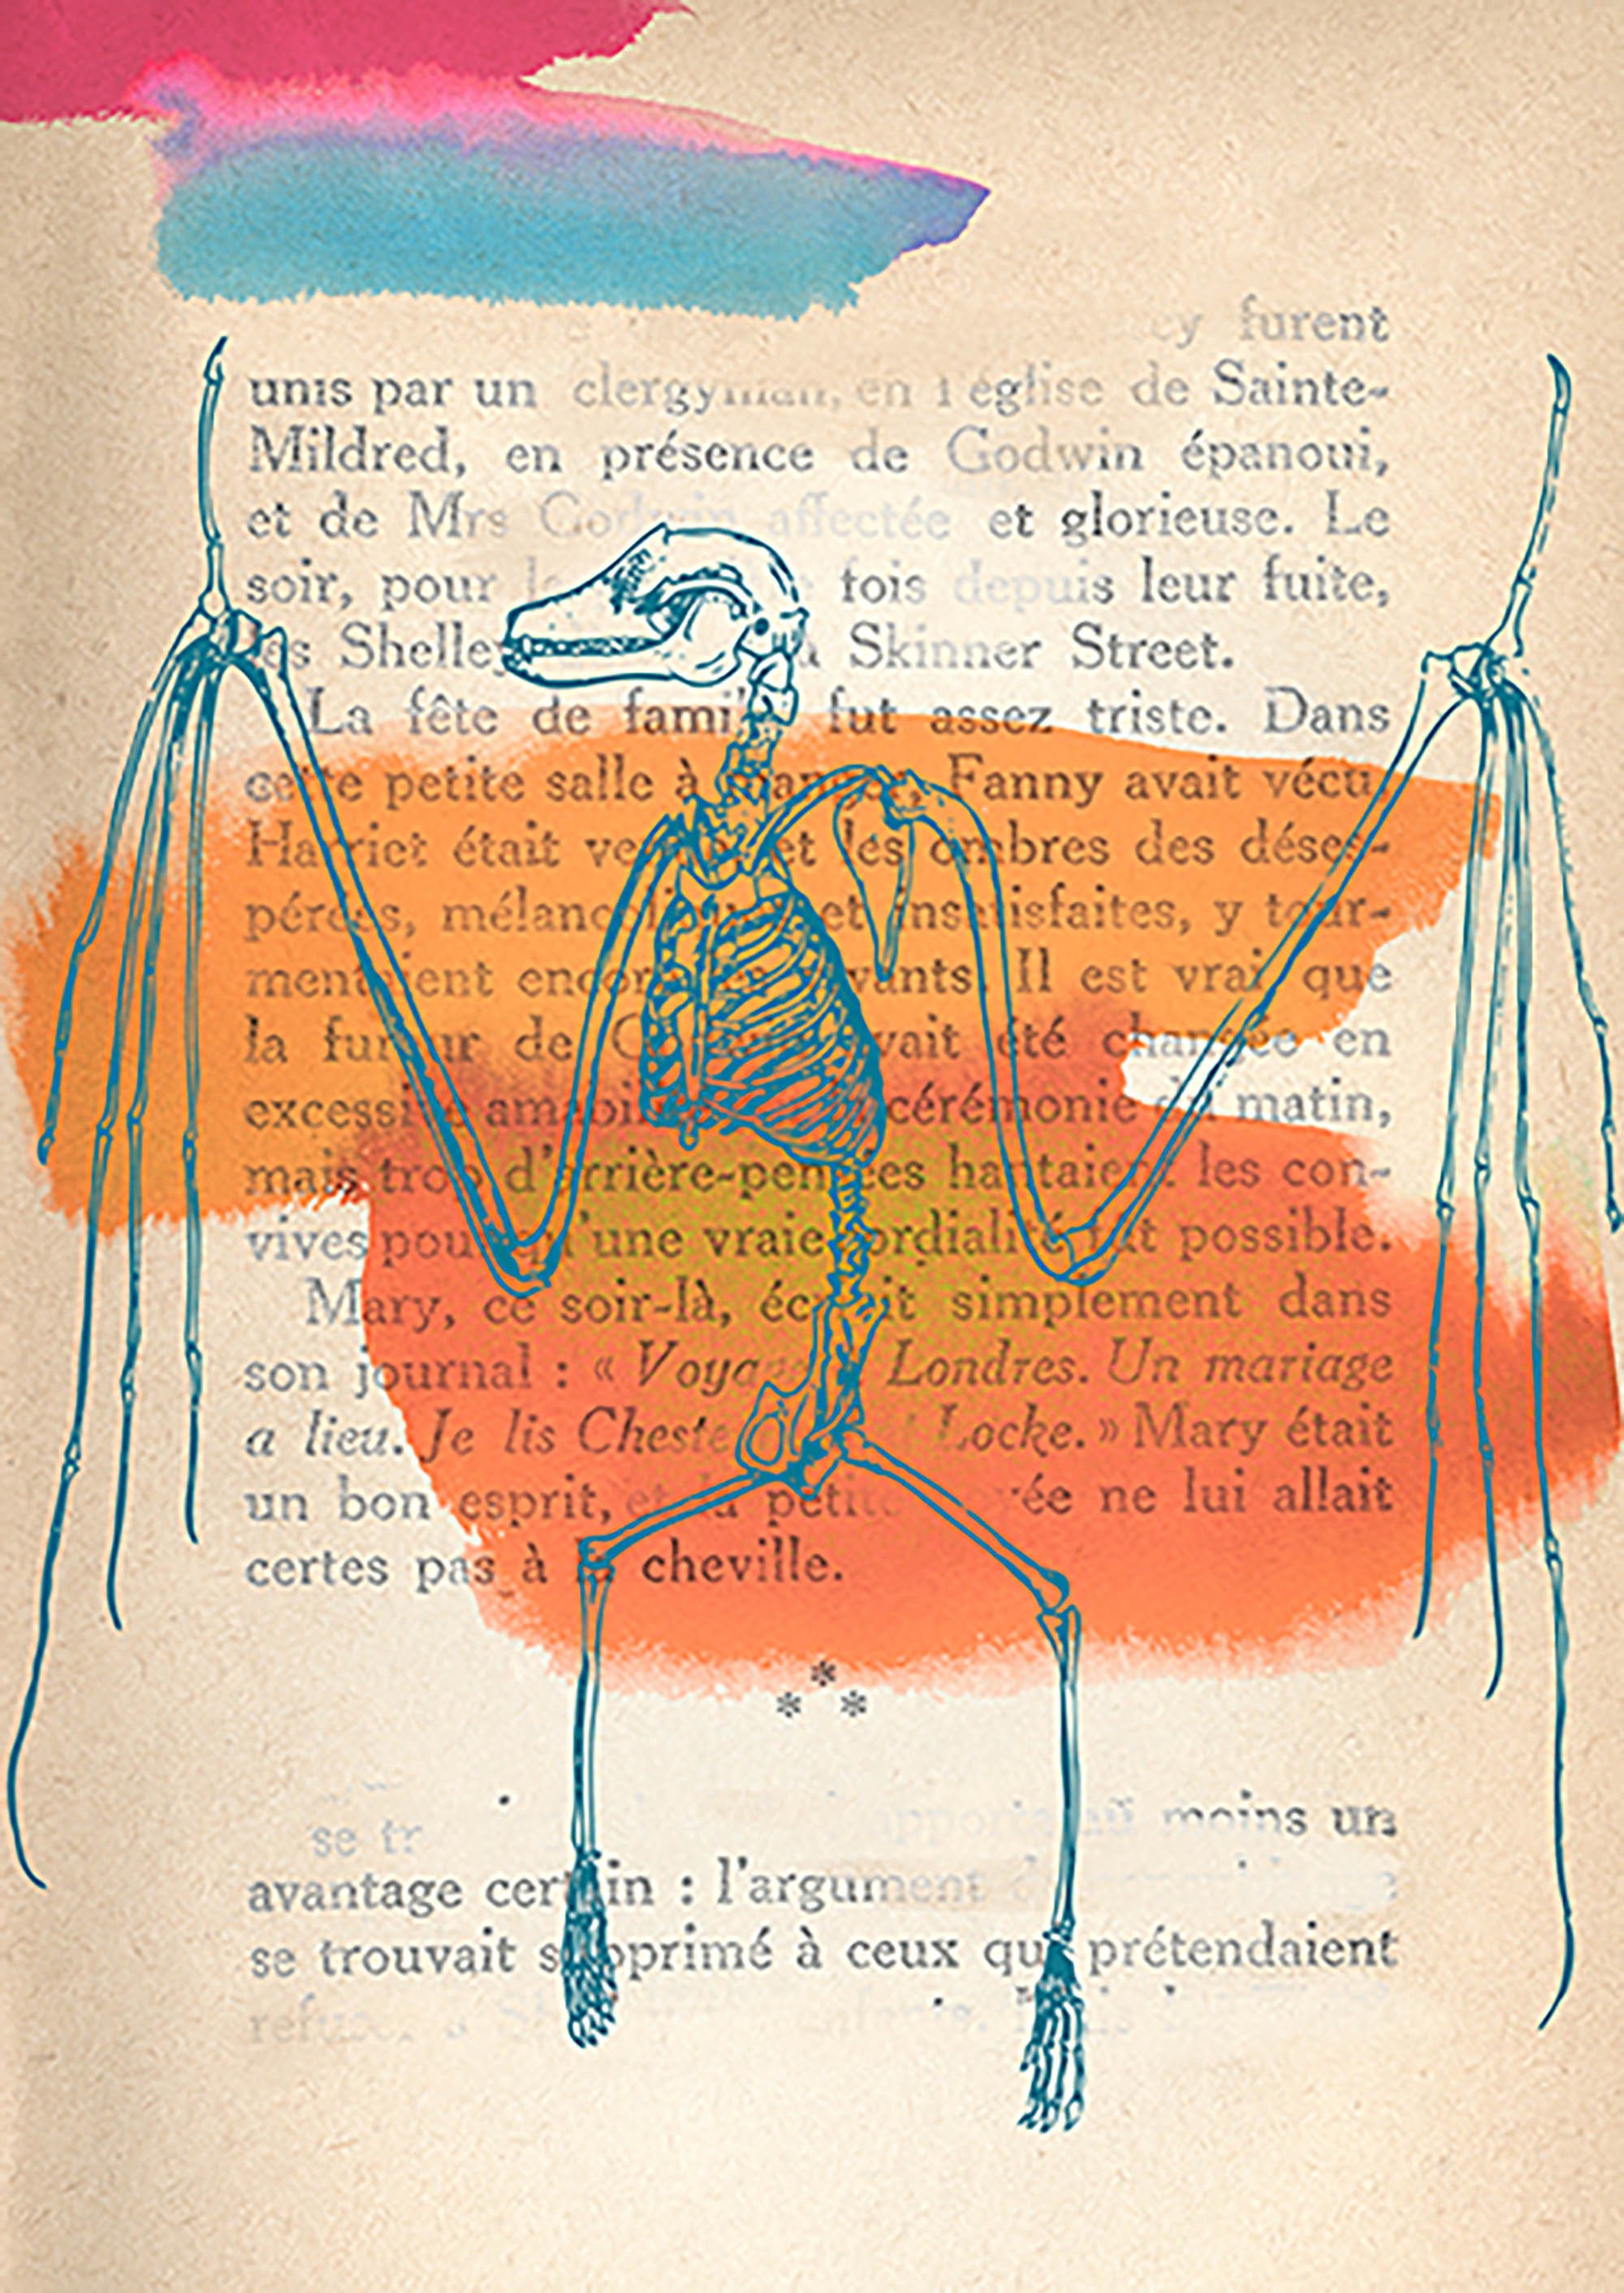 furent
unis par un clergyman, en l'église de Sainte-
Mildred, en présence de Godwin épanoui,
et de Mrs Godwin affectée et glorieuse. Le
soir, pour fois depuis leur fuite,
les Shelley à Skinner Street.
La fête de famille fut assez triste. Dans
cette petite salle à manger, Fanny avait vécu,
Harriet était et les ombres des déses-
pérées, mélancoliques et insatisfaites, y tour-
mentaient encore vivants. Il est vrai que
la fureur de avait été changée en
excessive amabilité cérémonie du matin,
mais trop d'arrière-pensées hantaient les con-
vives pour qu'une vraie cordialité fût possible.
Mary, ce soir-là, écrivit simplement dans
son journal : « Voyage Londres. Un mariage
a lieu. Je lis Locke. » Mary était
un bon esprit, et la petite ne lui allait
certes pas à la cheville.
* * *
se tr moins un
avantage certain : l'argument
se trouvait supprimé à ceux qui prétendaient